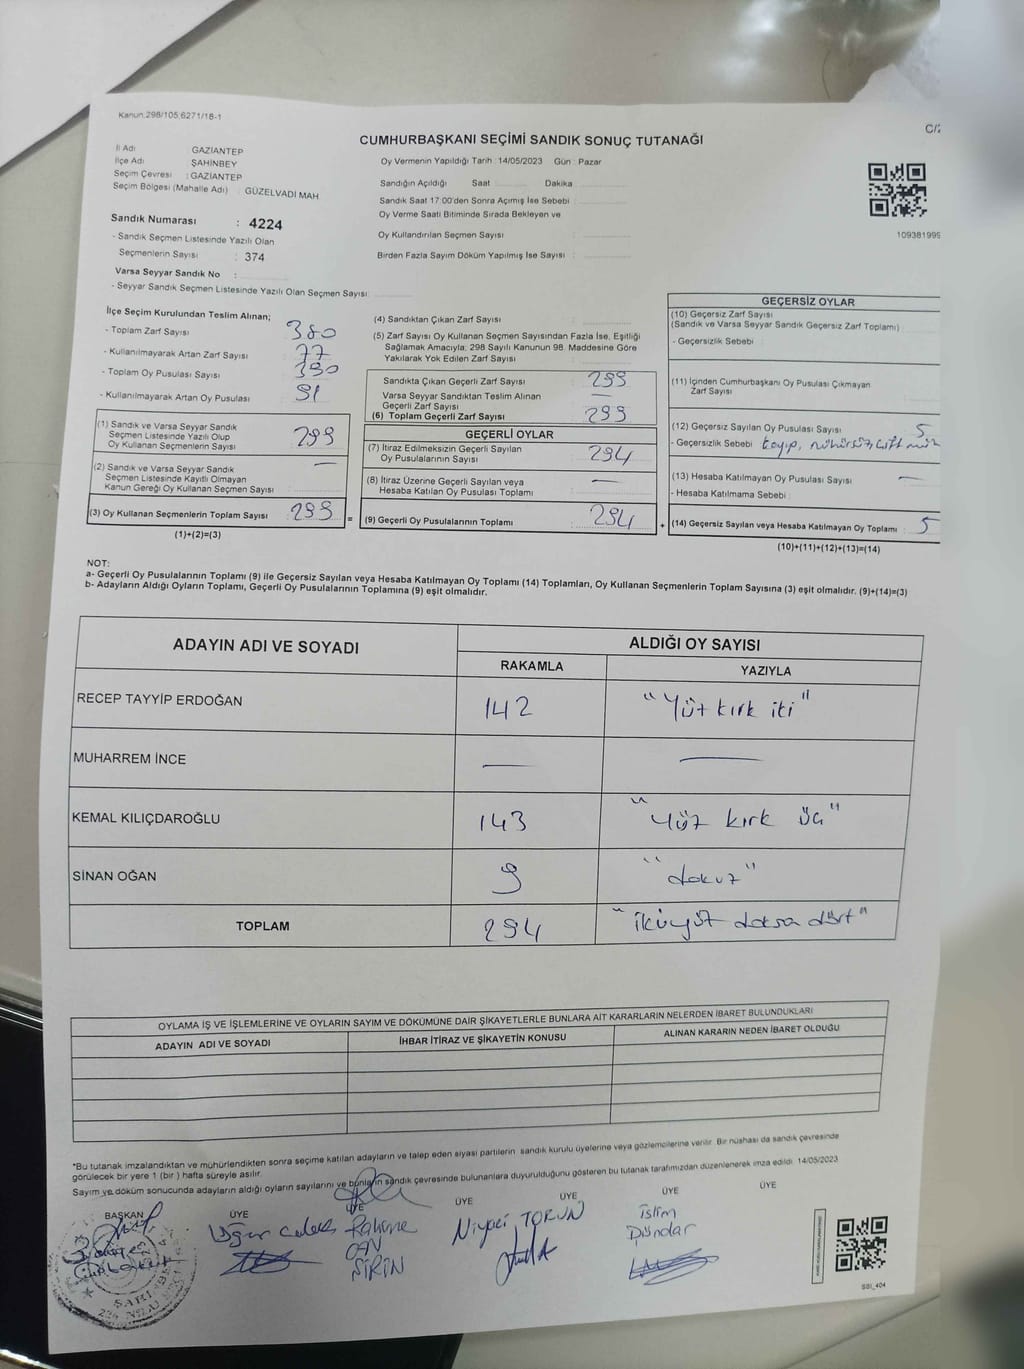 Kanun:298/105,6271/18-1
C/2
CUMHURBAŞKANI SEÇİMİ SANDIK SONUÇ TUTANAĞI
İl Adı GAZİANTEP
İlçe Adı ŞAHİNBEY
Seçim Çevresi : GAZİANTEP
Seçim Bölgesi (Mahalle Adı) : GÜZELVADI MAH
Sandık Numarası : 4224
- Sandık Seçmen Listesinde Yazılı Olan
Seçmenlerin Sayısı : 374
Varsa Seyyar Sandık No :
- Seyyar Sandık Seçmen Listesinde Yazılı Olan Seçmen Sayısı:
Oy Vermenin Yapıldığı Tarih : 14/05/2023 Gün : Pazar
Sandığın Açıldığı Saat Dakika
Sandık Saat 17:00'den Sonra Açımış İse Sebebi :
Oy Verme Saati Bitiminde Sırada Bekleyen ve
Oy Kullandırılan Seçmen Sayısı :
Birden Fazla Sayım Döküm Yapılmış İse Sayısı :
109381999
İlçe Seçim Kurulundan Teslim Alınan;
- Toplam Zarf Sayısı 380
- Kullanılmayarak Artan Zarf Sayısı 77
- Toplam Oy Pusulası Sayısı 390
- Kullanılmayarak Artan Oy Pusulası 91
(1) Sandık ve Varsa Seyyar Sandık
Seçmen Listesinde Yazılı Olup
Oy Kullanan Seçmenlerin Sayısı 299
(2) Sandık ve Varsa Seyyar Sandık
Seçmen Listesinde Kayıtlı Olmayan
Kanun Gereği Oy Kullanan Seçmen Sayısı —
(3) Oy Kullanan Seçmenlerin Toplam Sayısı 299 =
(1)+(2)=(3)
(4) Sandıktan Çıkan Zarf Sayısı :
(5) Zarf Sayısı Oy Kullanan Seçmen Sayısından Fazla İse, Eşitliği
Sağlamak Amacıyla; 298 Sayılı Kanunun 98. Maddesine Göre
Yakılarak Yok Edilen Zarf Sayısı
Sandıkta Çıkan Geçerli Zarf Sayısı 299
Varsa Seyyar Sandıktan Teslim Alınan
Geçerli Zarf Sayısı —
(6) Toplam Geçerli Zarf Sayısı 299
GEÇERLİ OYLAR
(7) İtiraz Edilmeksizin Geçerli Sayılan
Oy Pusulalarının Sayısı 294
(8) İtiraz Üzerine Geçerli Sayılan veya
Hesaba Katılan Oy Pusulası Toplamı —
(9) Geçerli Oy Pusulalarının Toplamı 294 +
GEÇERSİZ OYLAR
(10) Geçersiz Zarf Sayısı
(Sandık ve Varsa Seyyar Sandık Geçersiz Zarf Toplamı)
- Geçersizlik Sebebi :
(11) İçinden Cumhurbaşkanı Oy Pusulası Çıkmayan
Zarf Sayısı
(12) Geçersiz Sayılan Oy Pusulası Sayısı 5
- Geçersizlik Sebebi mühürsüz, çift müh
(13) Hesaba Katılmayan Oy Pusulası Sayısı —
- Hesaba Katılmama Sebebi :
(14) Geçersiz Sayılan veya Hesaba Katılmayan Oy Toplamı : 5
(10)+(11)+(12)+(13)=(14)
NOT:
a- Geçerli Oy Pusulalarının Toplamı (9) ile Geçersiz Sayılan veya Hesaba Katılmayan Oy Toplamı (14) Toplamları, Oy Kullanan Seçmenlerin Toplam Sayısına (3) eşit olmalıdır. (9)+(14)=(3)
b- Adayların Aldığı Oyların Toplamı, Geçerli Oy Pusulalarının Toplamına (9) eşit olmalıdır.
ADAYIN ADI VE SOYADI ALDIĞI OY SAYISI
RAKAMLA YAZIYLA
RECEP TAYYİP ERDOĞAN 142 "Yüz kırk iki"
MUHARREM İNCE — —
KEMAL KILIÇDAROĞLU 143 "Yüz kırk üç"
SİNAN OĞAN 9 "dokuz"
TOPLAM 294 "ikiyüz doksa dört"
OYLAMA İŞ VE İŞLEMLERİNE VE OYLARIN SAYIM VE DÖKÜMÜNE DAİR ŞİKAYETLERLE BUNLARA AİT KARARLARIN NELERDEN İBARET BULUNDUKLARI
ADAYIN ADI VE SOYADI İHBAR İTİRAZ VE ŞİKAYETİN KONUSU ALINAN KARARIN NEDEN İBARET OLDUĞU
*Bu tutanak imzalandıktan ve mühürlendikten sonra seçime katılan adayların ve talep eden siyasi partilerin sandık kurulu üyelerine veya gözlemcilerine verilir. Bir nüshası da sandık çevresinde
görülecek bir yere 1 (bir) hafta süreyle asılır.
Sayım ve döküm sonucunda adayların aldığı oyların sayılarını ve bunların sandık çevresinde bulunanlara duyurulduğunu gösteren bu tutanak tarafımızdan düzenlenerek imza edildi. 14/05/2023
BAŞKAN ÜYE ÜYE ÜYE ÜYE ÜYE ÜYE
Rahime
CAN
ŞİRİN
Niyazi TORUN
İslim
Dündar
SSI_404